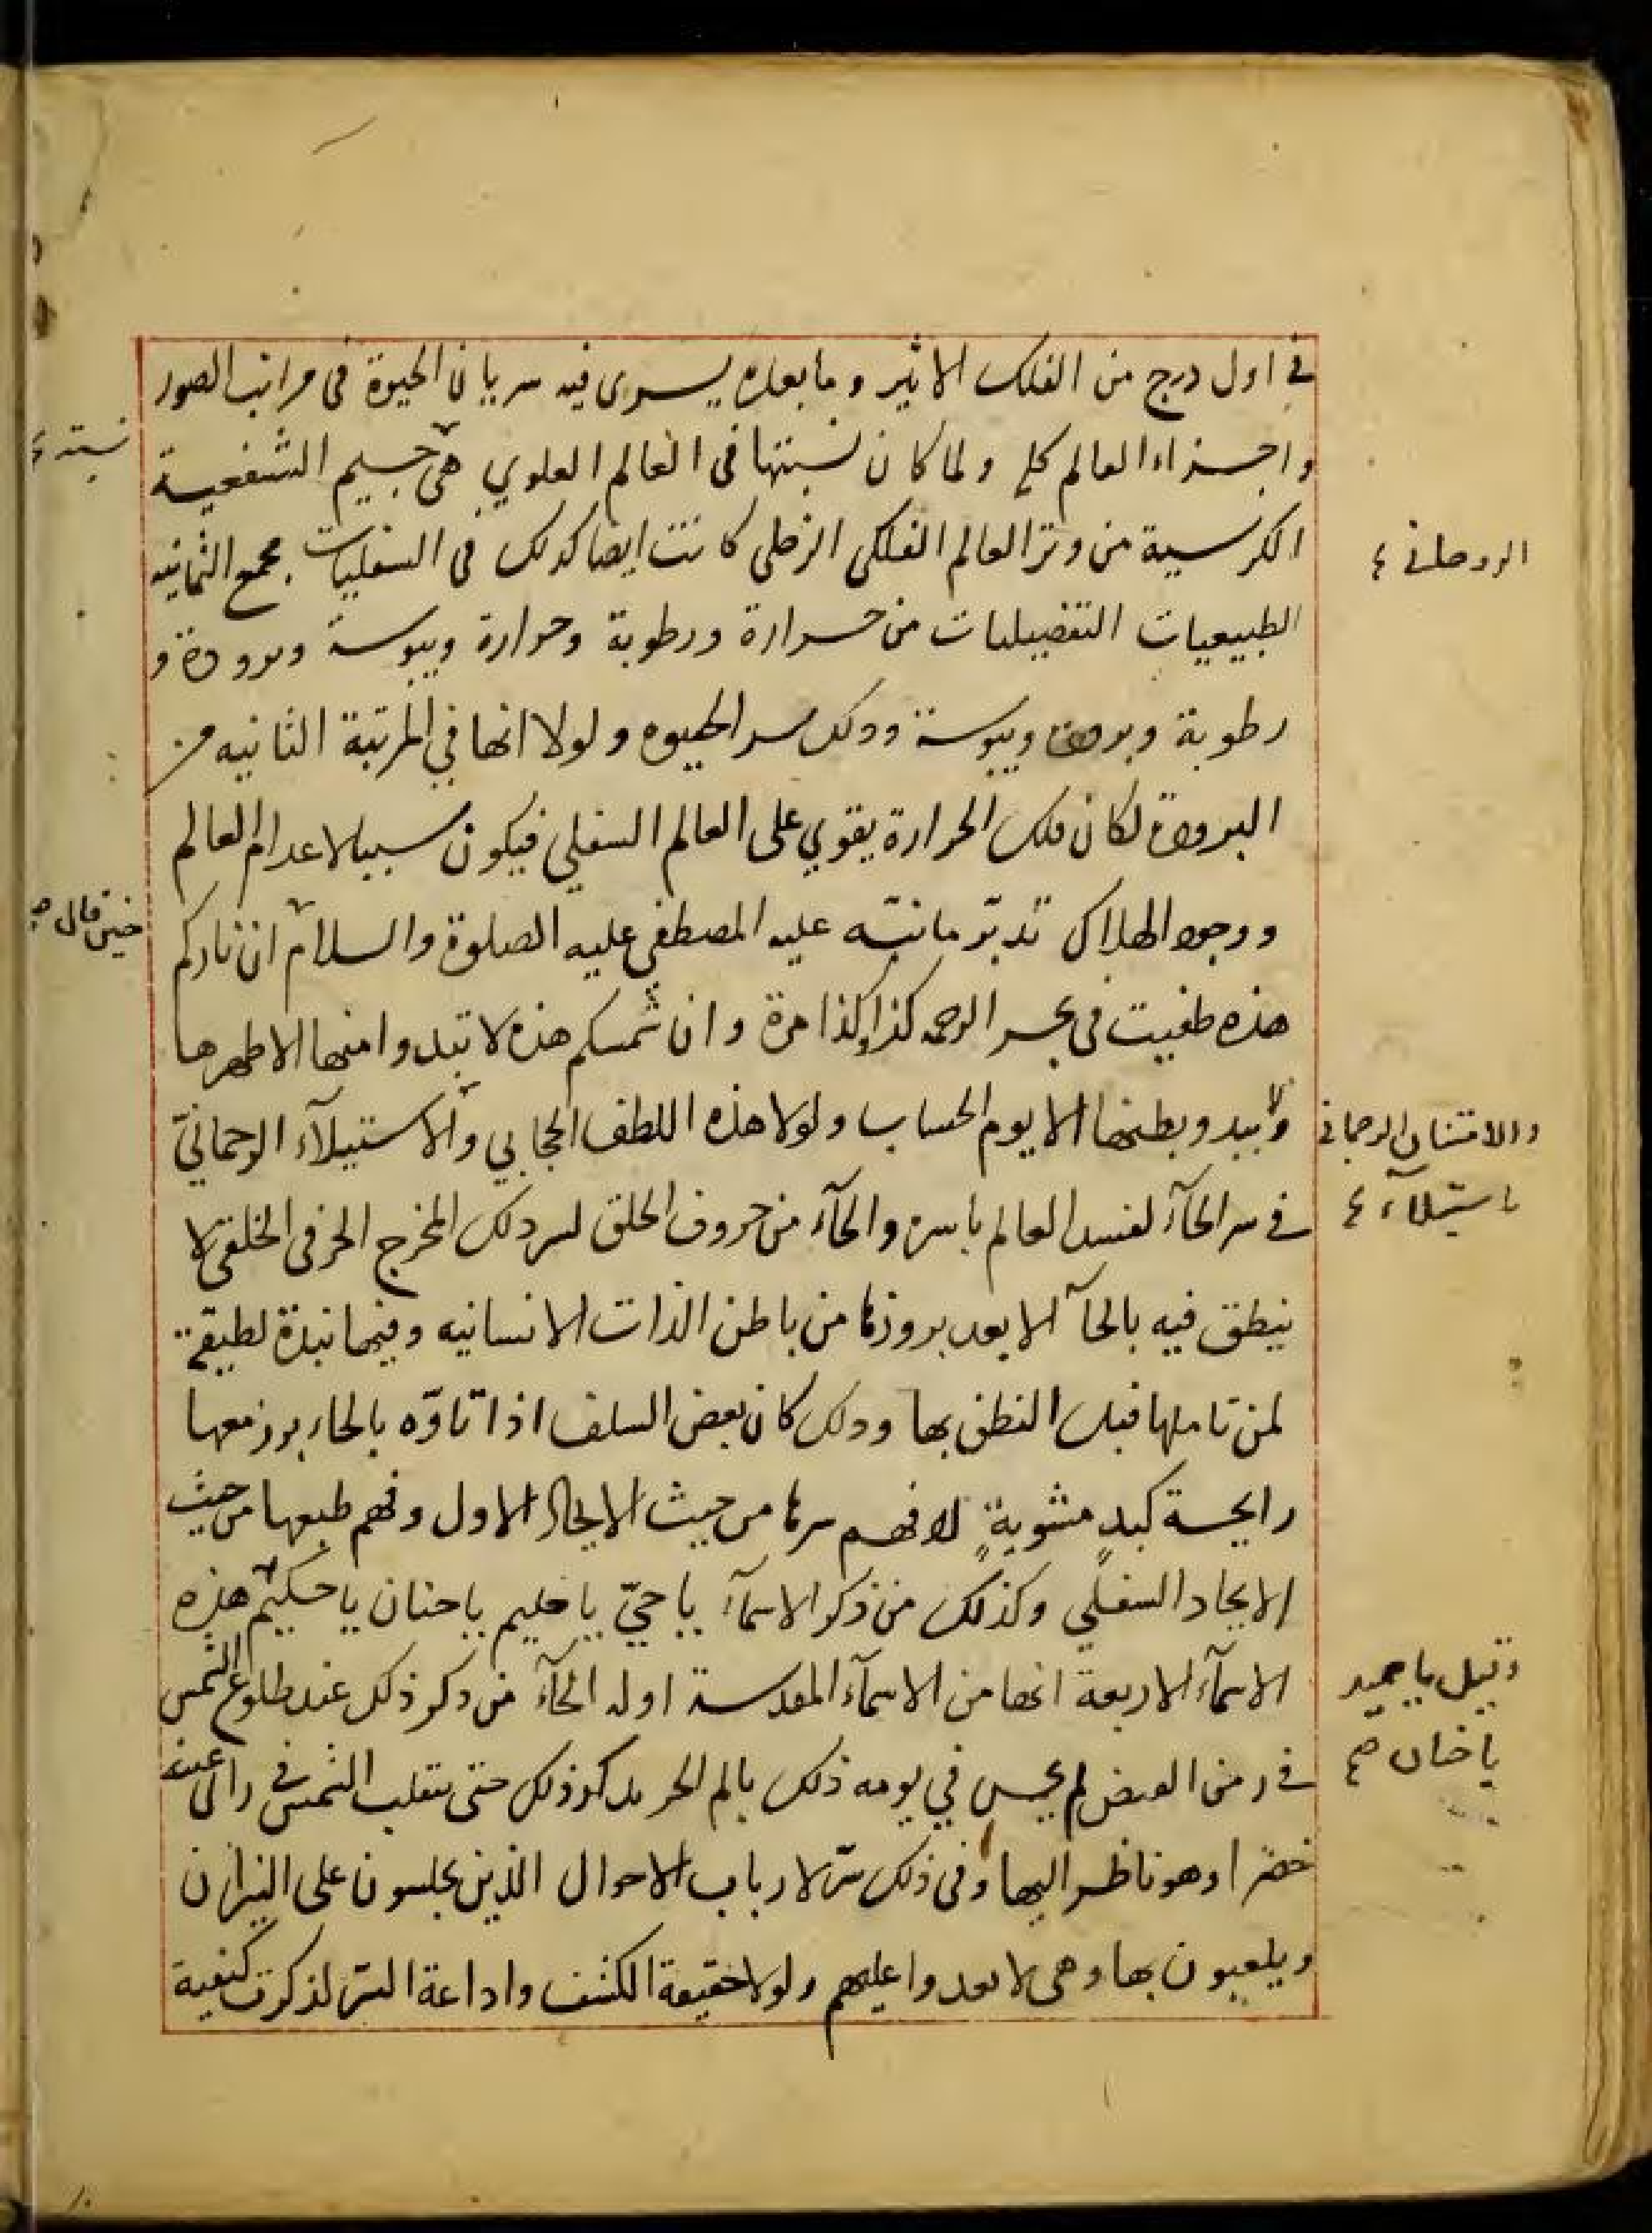 في اول درج من الفلك الاثير و ما بعده يسرى فيه سريان الحيوة فى مراتب الصور
واجزاء العالم كله ولما كان نسبتها فى العالم العلوي هى جسيم الشفعية
نسبته ع
الكرسية من وتر العالم الفلكى الزحلى كانت ايضا كذلك فى السفليات مجمع الثمانيه
الروحاني ع
الطبيعيات التفضيليات من حرارة ورطوبة وحرارة ويبوسة وبرودة و
رطوبة وبرودة ويبوسة وذلك سر الحيوه ولولا انها في المرتبة الثانيه من
البرودة لكان فلك الحرارة يقوي على العالم السفلي فيكون سببا لاعدام العالم
ووجود الهلاك تدبّر ما نبّه عليه المصطفي عليه الصلوة والسلام ان ناركم
حين قال ص
هذه طفيت فى بحر الرحمه كذا وكذا مرة وان شمسكم هذه لا تبدوا منها الا ظهرها
ولا يبدو بطنها الا يوم الحساب ولولا هذه اللطف الحجابي والاستيلآء الرحمانيّ
والامتنان الرحماني
باستيلآء ع
في سر الحآء لفسد العالم باسره والحآء من حروف الحلق لسر ذلك المخرج الحرفى الخلقى لا
ينطق فيه بالحآ الا بعد بروزها من باطن الذات الانسانيه وفيها نبذة لطيفة
لمن تاملها قبل النطق بها وذلك كان بعض السلف اذا تاوّه بالحاء برز معها
رايحة كبدٍ مشويةٍ لافهم سرها من حيث الايجاد الاول وفهم طبعها من حيث
الايجاد السفلي وكذلك من ذكر الاسمآء يا حيّ يا حليم يا حنان يا حكيم هذه
الاسمآء الاربعة انها من الاسمآء المقدسة اوله الحآء من ذكر ذلك عند طلوع الشمس
وقيل يا حميد
يا حنان صح
في زمن القيض لم يحس في يومه ذلك بالم الحر يذكر ذلك حتى تنقلب الشمس في راى عينه
خضرا وهو ناظر اليها وفى ذلك سرّ لارباب الاحوال الذين يجلسون على النيران
ويلعبون بها وهى لا تعدوا عليهم ولولا حقيقة الكشف واذاعة السّر لذكرت كيفية